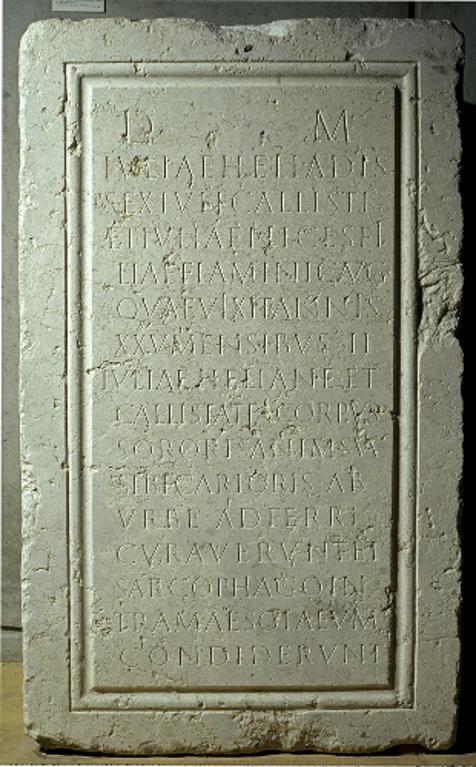 D M
IVLIAE HELIADIS
SEX IVLI CALLISTI
ET IVLIAE NICES FI
LIAE FLAMINIC AVG
QVAE VIXIT ANNIS
XXV MENSIBVS II
IVLIAE HELIANE ET
CALLISTATE CORPVS
SORORIS
SIBI CARIORIS AB
VRBE ADFERRI
CVRAVERVNT ET
SARCOPHAGO IN
TRA MAESOLAEVM
CONDIDERVNT